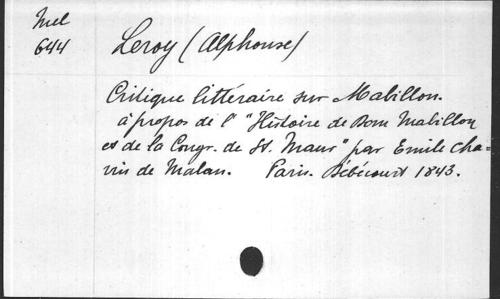 Mel
644
Leroy (Alphonse)
Critique littéraire sur Mabillon.
à propos de l' "Histoire de Dom Mabillon
et de la Congr. de St. Maur" par Emile Cha=
vin de Malan. Paris. Débécourt 1843.